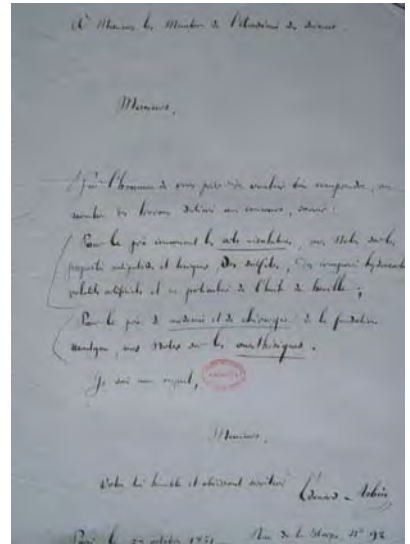 A Messieurs les Membres de l'Académie des Sciences
Messieurs,
J'ai l'honneur de vous prier de vouloir bien comprendre, au
nombre des travaux destinés au concours, savoir:
Pour le prix concernant les arts insalubres, mes Notes sur les
propriétés antiputrides et toxiques des sulfites, des composés hydrocarbonés
volatils artificiels et en particulier de l'huile de houille;
Pour le prix de médecine et de chirurgie de la fondation
Montyon, mes Notes sur les anesthésiques.
Je suis avec respect,
Messieurs,
Votre très humble et obéissant serviteur
Édouard Robin
Paris le octobre 1851 Rue de la Harpe N° 93